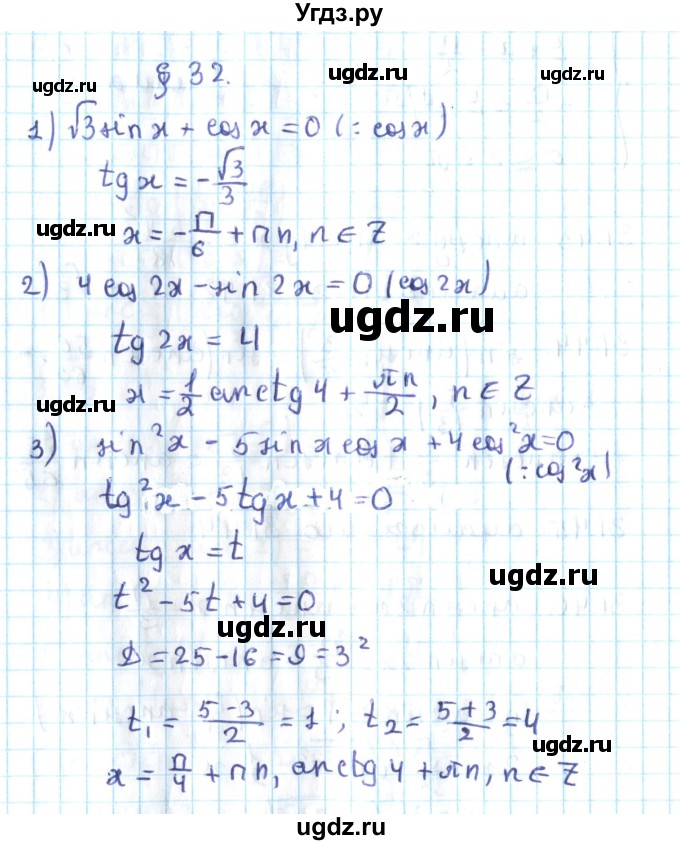 Угдз.ру
§ 32.
ugdz.ru ugdz.ru ugdz.ru
1) √3 sin x + cos x = 0 (: cos x)
tg x = -√3/3
ugdz.ru
x = -π/6 + πn, n ∈ Z
2) 4 cos 2x - sin 2x = 0 (cos 2x)
ugdz.ru
tg 2x = 4
x = 1/2 arctg 4 + πn/2, n ∈ Z
ugdz.ru
3) sin²x - 5 sin x cos x + 4 cos²x = 0
(: cos²x)
tg²x - 5 tg x + 4 = 0
tg x = t
ugdz.ru
t² - 5t + 4 = 0
ugdz.ru
D = 25 - 16 = 9 = 3²
t₁ = (5-3)/2 = 1; t₂ = (5+3)/2 = 4
ugdz.ru
x = π/4 + πn, arctg 4 + πn, n ∈ Z
ugdz.ru
ugdz.ru